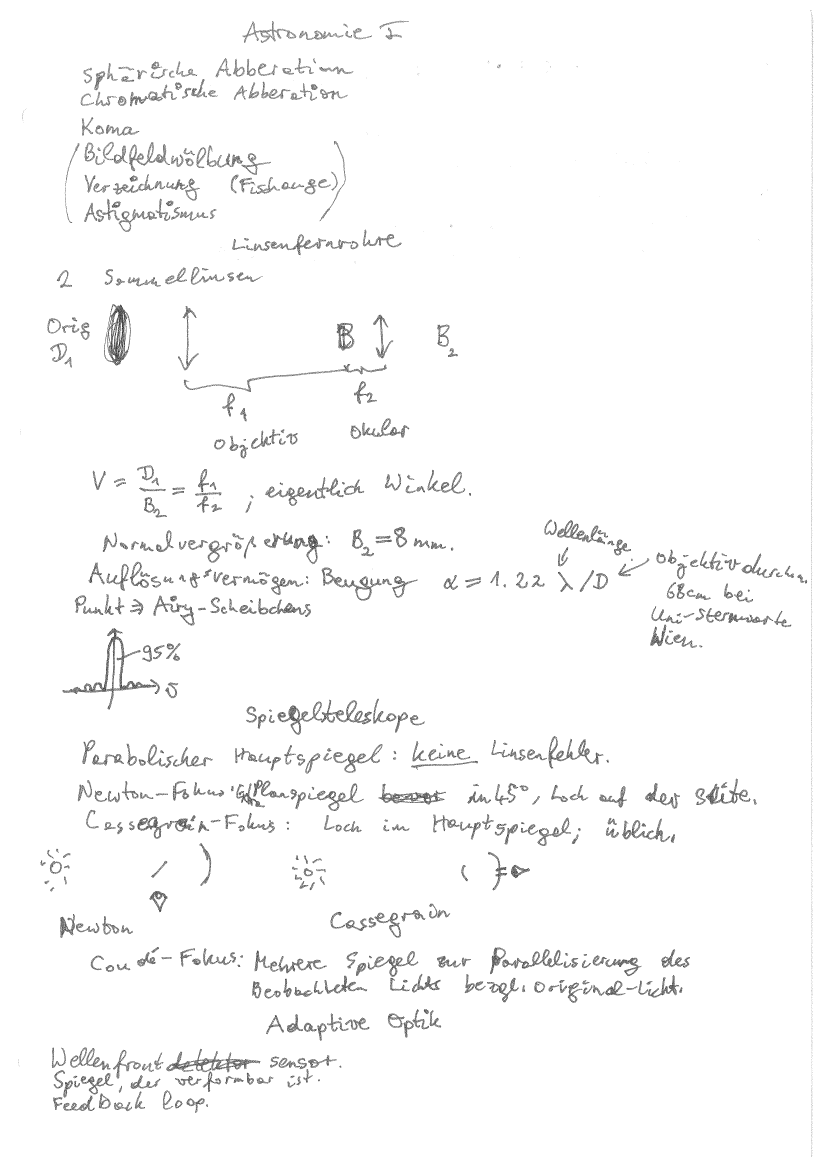 Astronomie I
Sphärische Abberation
Chromatische Abberation
Koma
(Bildfeldwölbung
Verzeichnung (Fischauge)
Astigmatismus)
Linsenfernrohre
2 Sammellinsen
Orig D₁ B B₂
f₁ f₂
Objektiv Okular
V = D₁/B₂ = f₁/f₂ ; eigentlich Winkel.
Normalvergrößerung: B₂ = 8 mm.
Wellenlänge
Auflösungsvermögen: Beugung α = 1.22 λ/D
Objektivdurchm.
68cm bei
Uni-Sternwarte
Wien.
Punkt ⇒ Airy-Scheibchens
95%
Spiegelteleskope
Parabolischer Hauptspiegel: keine Linsenfehler.
Newton-Fokus: Planspiegel in 45°, Loch auf der Seite.
Cassegrain-Fokus: Loch im Hauptspiegel; üblich.
Newton Cassegrain
Coudé-Fokus: Mehrere Spiegel zur Parallelisierung des
Beobachteten Lichts bezgl. Original-Licht.
Adaptive Optik
Wellenfront detektor sensor.
Spiegel, der verformbar ist.
Feedback loop.